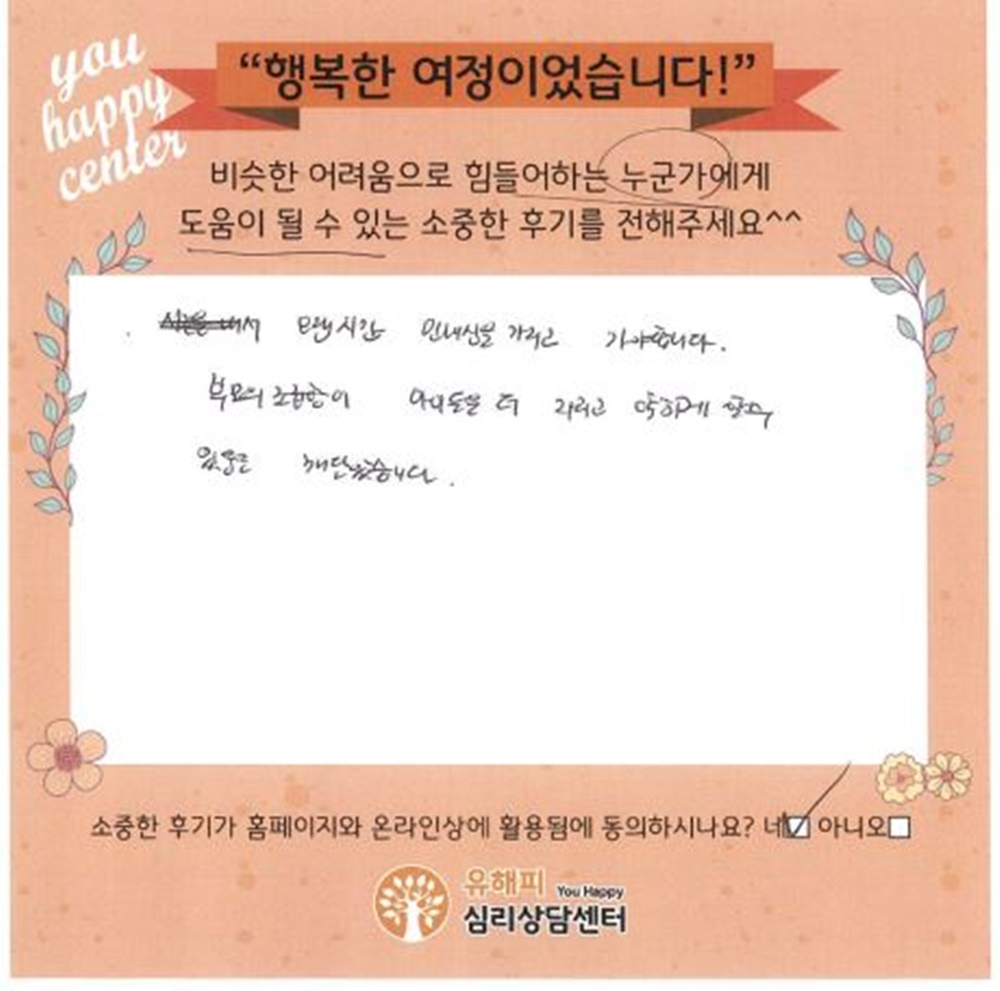 you
happy
center
“행복한 여정이었습니다!”
비슷한 어려움으로 힘들어하는 누군가에게
도움이 될 수 있는 소중한 후기를 전해주세요^^
오랜시간 인내심을 가지고 가야합니다.
부모의 조급함이 아이들을 더
있음을 깨달았습니다.
소중한 후기가 홈페이지와 온라인상에 활용됨에 동의하시나요? 네 아니오
유해피 You Happy
심리상담센터